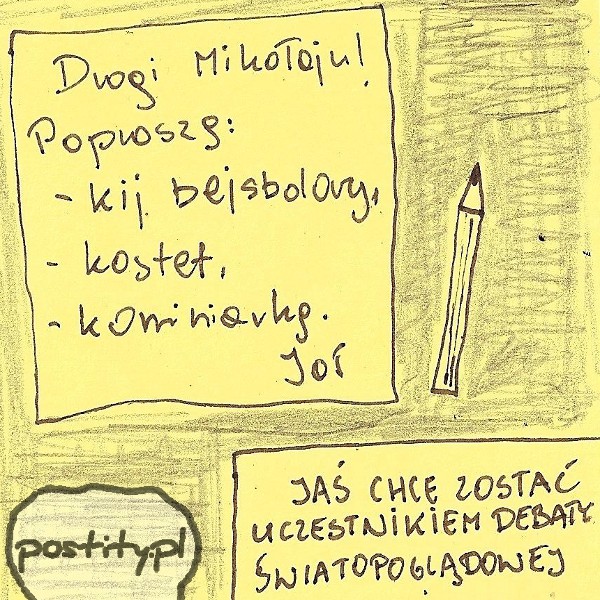 Drogi Mikołaju!
Poproszę:
- kij bejsbolowy,
- kastet,
- kominiarkę.
Jaś
JAŚ CHCE ZOSTAĆ
UCZESTNIKIEM DEBATY
ŚWIATOPOGLĄDOWEJ
postity.pl